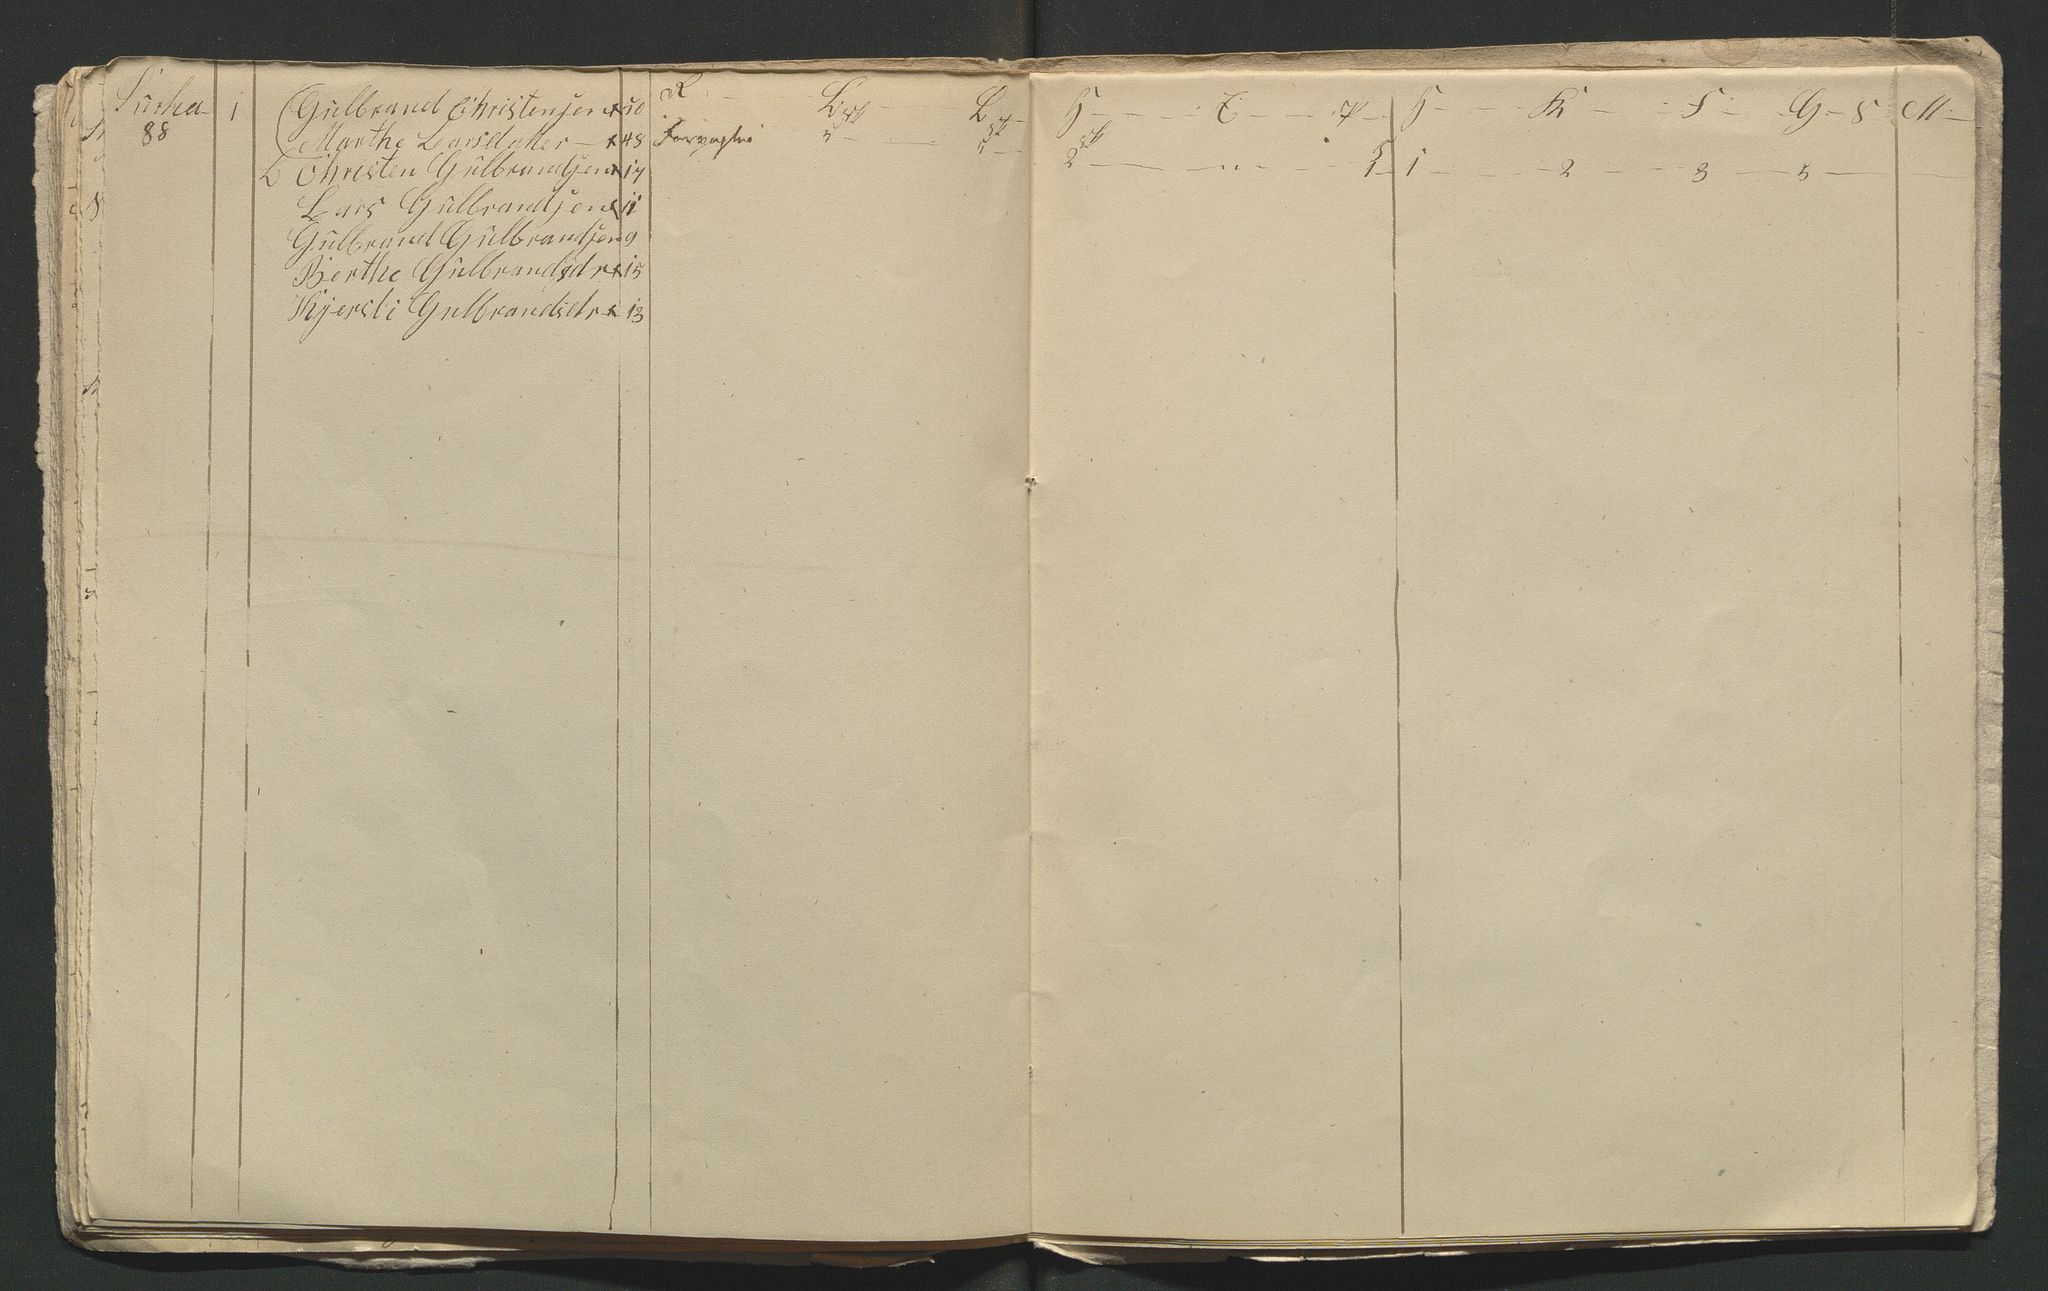 88
1 Gulbrand Christensen 50
Marthe Larsdatter 48
L Christen Gulbrandsen 17
Lars Gulbrandsen 11
Gulbrand Gulbrandsen 9
Berthe Gulbrandsdr 15
Kjersti Gulbrandsdr 13
R L L
H E P H K F G S M
2 1 1 2 3 5